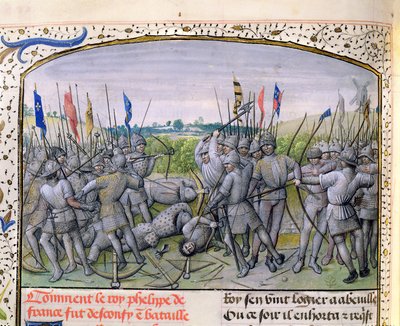 Comment le roy phelippe de
france fut desconfy ē bataille
Roy sen vint logier a abeuille
Ou ce soir il enhorta